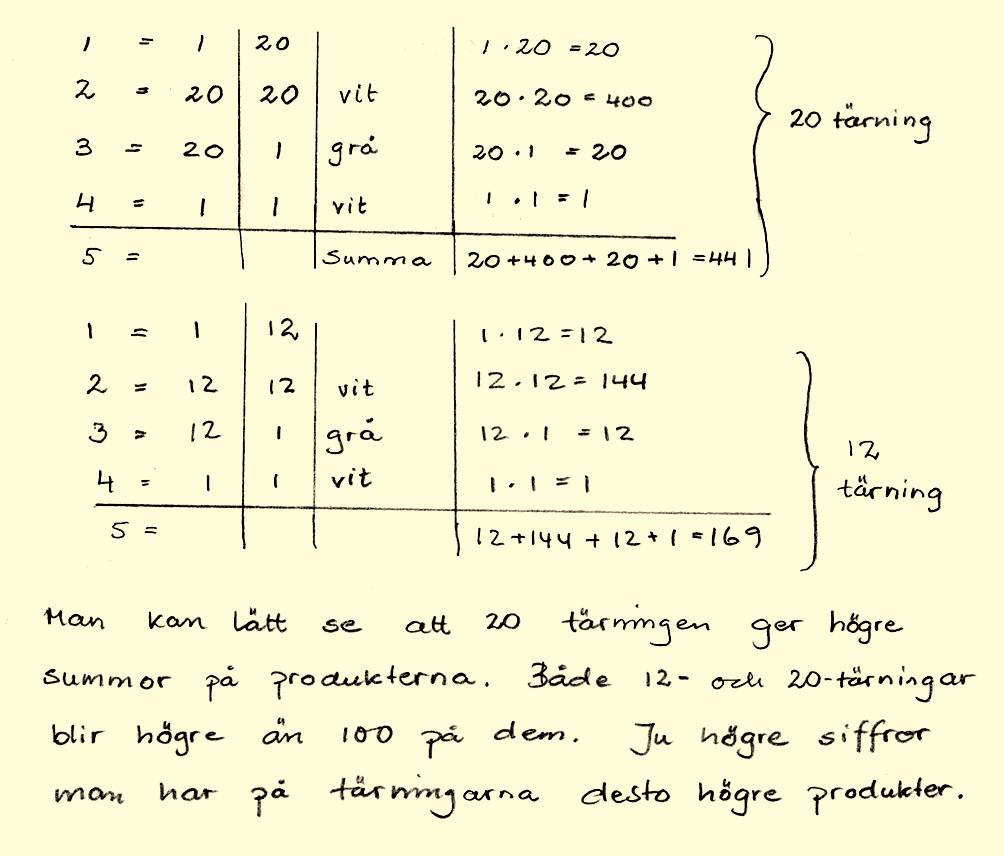 1 = 1 20 1 · 20 = 20
2 = 20 20 vit 20 · 20 = 400
3 = 20 1 grå 20 · 1 = 20
4 = 1 1 vit 1 · 1 = 1
5 = Summa 20 + 400 + 20 + 1 = 441
20 tärning
1 = 1 12 1 · 12 = 12
2 = 12 12 vit 12 · 12 = 144
3 = 12 1 grå 12 · 1 = 12
4 = 1 1 vit 1 · 1 = 1
5 = 12 + 144 + 12 + 1 = 169
12
tärning
Man kan lätt se att 20 tärningen ger högre
summor på produkterna. Både 12- och 20-tärningar
blir högre än 100 på dem. Ju högre siffror
man har på tärningarna desto högre produkter.